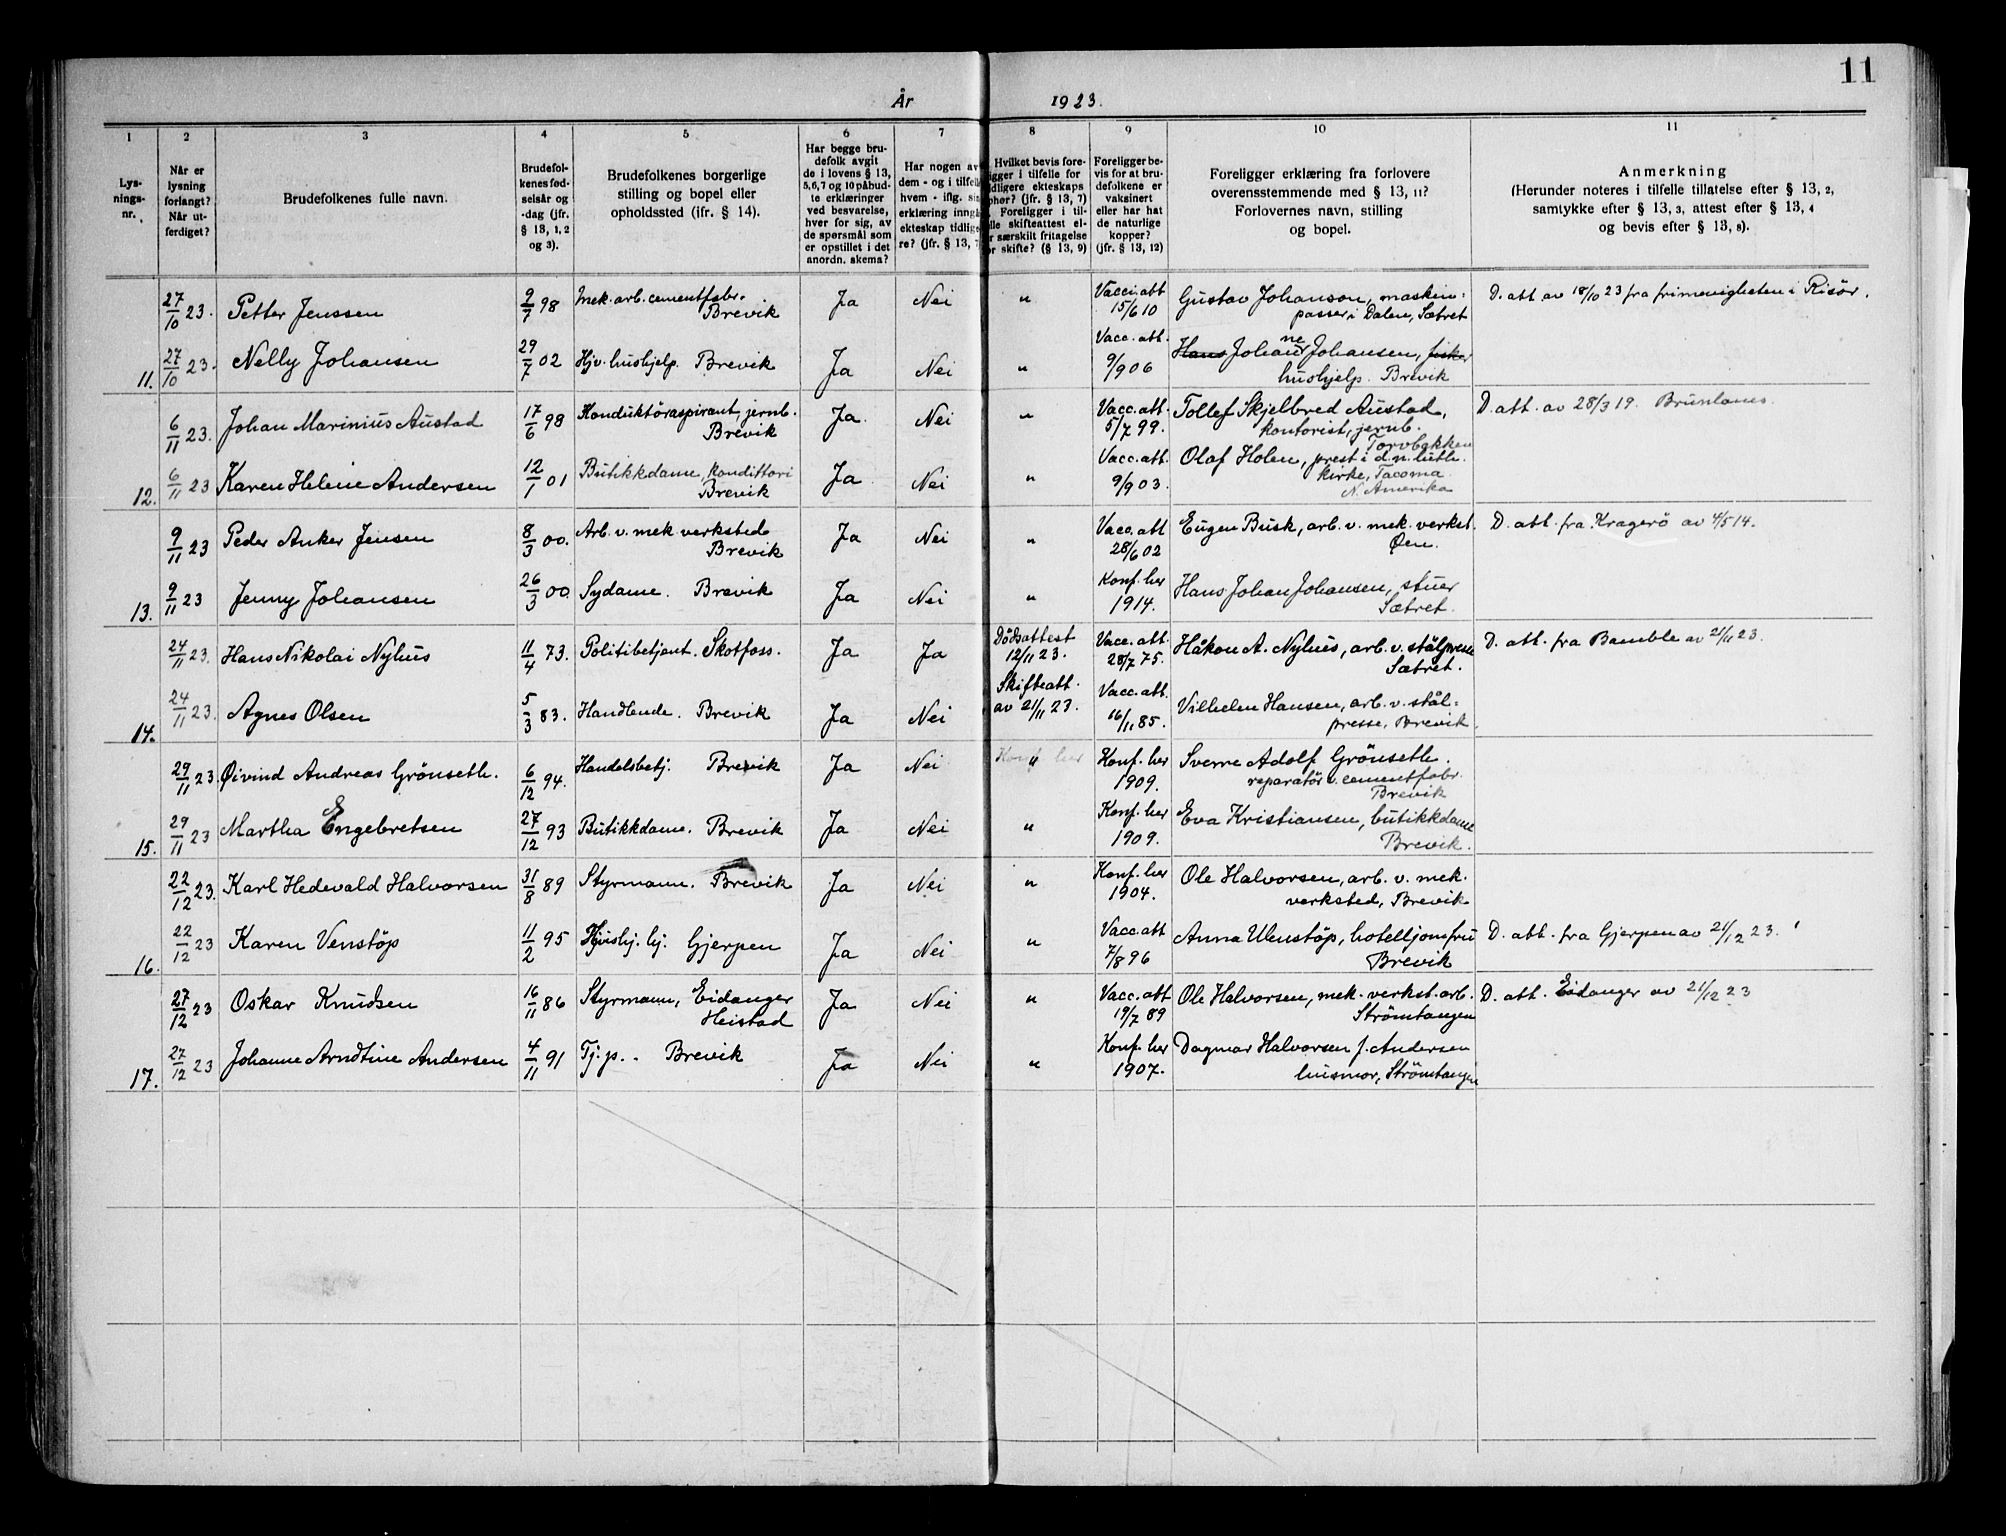 11
År 1923.
1 2 3 4 5 6 7 8 9 10 11
Lys-
nings-
nr.
Når er
lysning
forlangt?
Når ut-
ferdiget?
Brudefolkenes fulle navn.
Brudefol-
kenes fød-
selsår og
-dag (jfr.
§ 13, 1, 2
og 3).
Brudefolkenes borgerlige
stilling og bopel eller
opholdssted (ifr. § 14).
Har begge bru-
defolk avgit
de i lovens § 13,
5,6,7 og 10 påbud-
te erklæringer
ved besvarelse,
hver for sig, av
de spørsmål som
er opstillet i det
anordn. skema?
Har nogen av
dem - og i tilfelle
hvem - iflg. sin
erklæring inngå
ekteskap tidlige
re? (jfr. § 13, 7
Hvilket bevis fore-
igger i tilfelle for
dligere ekteskaps
phør? (jfr. § 13, 7)
. Foreligger i til-
lle skifteattest el-
r særskilt fritagelse
or skifte? (§ 13, 9)
Foreligger be-
vis for at bru-
defolkene er
vaksinert
eller har hat
de naturlige
kopper?
(jfr. § 13, 12)
Foreligger erklæring fra forlovere
overensstemmende med § 13, 11?
Forlovernes navn, stilling
og bopel.
Anmerkning
(Herunder noteres i tilfelle tillatelse efter § 13, 2,
samtykke efter § 13, 3, attest efter § 13, 4
og bevis efter § 13, 8).
27/10 23. Petter Jenssen 9/7 98 Mek. arb. cementfabr. Brevik Ja Nei " Vacci. att 15/6 10 Gustav Johanson, maskin- passer i Dalen, Sætret D. att av 18/10 23 fra frimenigheten i Risör.
11. 27/10 23. Nelly Johansen 29/7 02 Hjv. hushjelp. Brevik Ja Nei " Vacc. att. 9/9 06 Hans Johanne Johansen, fisker hushjelp. Brevik
6/11 23. Johan Marinius Austad 17/6 98 Konduktöraspirant, jernb. Brevik Ja. Nei " Vacc. att. 5/7 99. Tollef Skjelbred Austad, kontorist, jernb. Torvbakken D. att. av 28/3 19. Brunlanes.
12. 6/11 23 Karen Helene Andersen 12/1 01 Butikkdame, konditori Brevik Ja Nei " Vacc. att. 9/9 03. Olaf Holen, prest i d. n. luth. kirke, Tacoma N. Amerika
9/11 23 Peder Anker Jensen 8/3 00. Arb. v. mek verksted Brevik Ja Nei " Vacc. att 28/6 02 Eugen Busk, arb. v. mek. verkst. Øen. D. att. fra Kragerö av 4/5 14.
13. 9/11 23 Jenny Johansen 26/3 00. Sydame. Brevik Ja Nei " Konf. her 1914. Hans Johan Johansen, stuer Sætret.
24/11 23. Hans Nikolai Nyhus 11/4 73. Politibetjent. Skotfoss. Ja Ja Dödsattest 12/11 23. Vacc. att. 28/7 75. Håkon A. Nyhus, arb. v. stålpresse Sætret. D. att. fra Bamble av 21/11 23.
14. 24/11 23. Agnes Olsen 5/3 83. Handlende. Brevik Ja Nei Skifteatt. av 21/11 23. Vacc. att. 16/11 85. Vilhelm Hansen, arb. v. stål- presse, Brevik
29/11 23. Øivind Andreas Grönseth. 6/12 94. Handelsbetj. Brevik Ja Nei Konf her " Konf. her 1909. Sverre Adolf Grönseth. reparatör v. cementfabr. Brevik
15. 29/11 23 Martha Engebretsen 27/12 93 Butikkdame. Brevik Ja Nei " Konf. her 1909. Eva Kristiansen, butikkdame Brevik.
22/12 23. Karl Hedevald Halvorsen 31/8 89 Styrmann. Brevik Ja Nei " Konf. her 1904. Ole Halvorsen, arb. v. mek. verksted, Brevik
16. 22/12 23 Karen Venstöp 11/2 95 Gjerpen Ja Nei " Vacc. att 7/8 96 Anna Venstöp, hotelljomfru Brevik D. att. fra Gjerpen av 21/12 23.
27/12 23 Oskar Knudsen 16/11 86 Styrmann, Eidanger Heistad Ja Nei " Vacc. att 19/7 89 Ole Halvorsen, mek. verkst. arb. Strömtangen D. att. Eidanger av 21/12 23
17. 27/12 23 Johanne Arndtine Andersen 4/11 91 Tj. p. . Brevik Ja Nei " Konf. her 1907. Dagmar Halvorsen f. Andersen husmor, Strömtangen